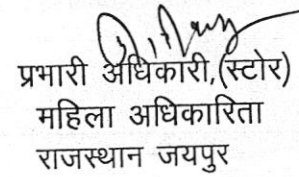 प्रभारी अधिकारी,(स्टोर)
महिला अधिकारिता
राजस्थान जयपुर